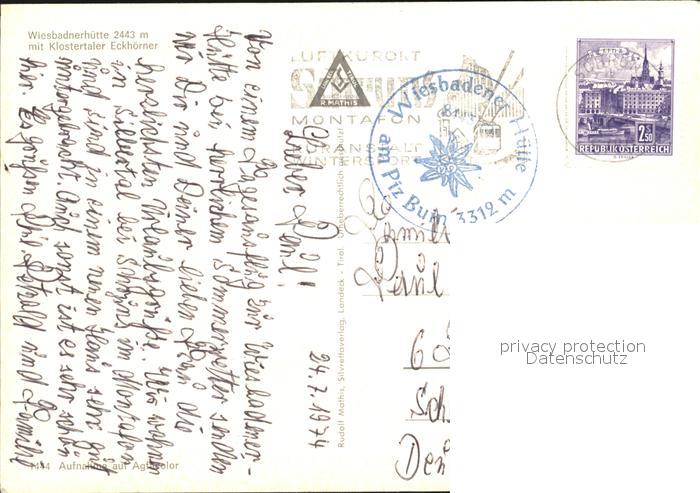 Wiesbadnerhütte 2443 m
mit Klostertaler Eckhörner
LUFTKURORT
R. MATHIS
MONTAFON
KURANSTALT
WINTERSPORT
Wiesbadener Hütte
am Piz Buin 3312 m
2.50
REPUBLIK ÖSTERREICH
24.7.1974
Lieber Paul!
Von einem Tagesausflug zur Wiesbadner-
Hütte bei herrlichem Sommerwetter senden
wir Dir und Deiner lieben Frau die
herzlichsten Urlaubsgrüße. Wir wohnen
in Silbertal bei Schruns im Montafon
und sind in einem neuen Haus sehr gut
untergebracht. Auch sonst ist es sehr schön
hier. Es grüßen Dich und
Rudolf Mathis, Silvrettaverlag, Landeck - Tirol. Urheberrechtlich geschützt
Famil
Paul
60
Sch
Den
privacy protection
Datenschutz
1444 Aufnahme auf Agfacolor